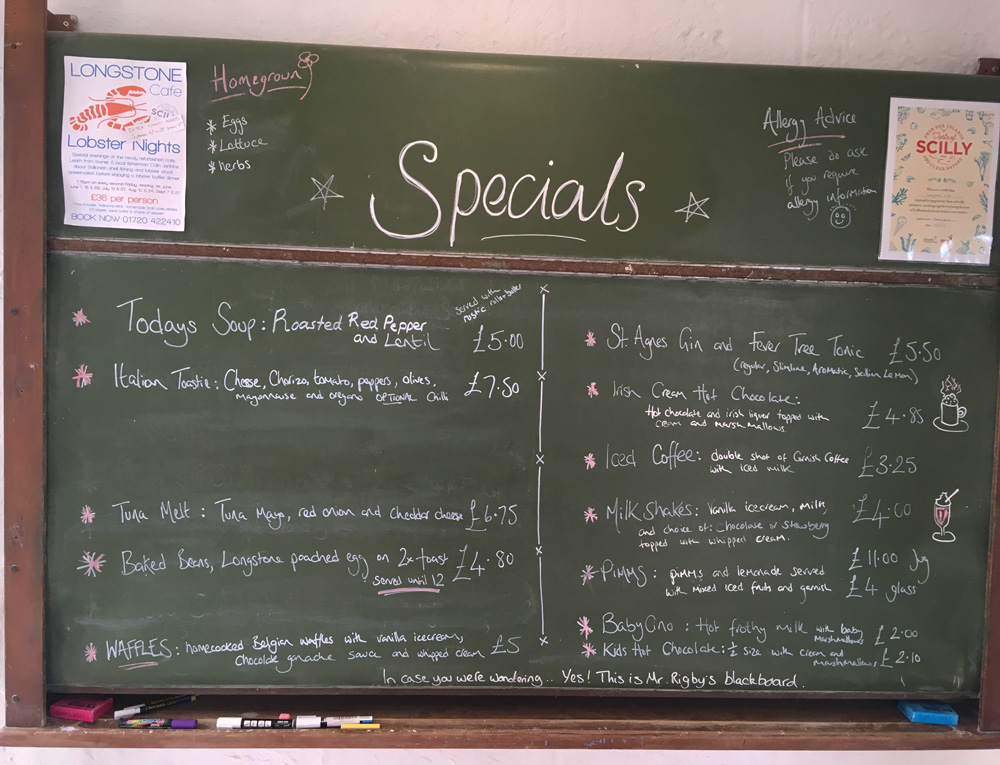 LONGSTONE
Cafe
Lobster Nights
£36 per person
BOOK NOW 01720 422410
Homegrown
* Eggs
* Lettuce
* herbs
Specials
Allergy Advice
Please do ask
if you require
allergy information
SCILLY
Todays Soup: Roasted Red Pepper
and Lentil
served with
£5.00
Italian Toastie: Cheese, Chorizo, tomato, peppers, olives,
mayonnaise and oregano OPTIONAL Chilli
£7.50
Tuna Melt: Tuna Mayo, red onion and cheddar cheese £6.75
Baked Beans, Longstone poached egg on 2x toast £4.80
served until 12
WAFFLES: homecooked Belgian waffles with vanilla icecream,
Chocolate ganache sauce and whipped cream £5
St Agnes Gin and Fever Tree Tonic £5.50
(regular, Slimline, Aromatic, Sicilian Lemon)
Irish Cream Hot Chocolate:
Hot chocolate and irish liquer topped with
cream and marshmallows
£4.85
Iced Coffee: double shot of Cornish Coffee
with iced milk
£3.25
Milkshakes: Vanilla icecream, milk,
and choice of: Chocolate or Strawberry
topped with whipped cream.
£4.00
PIMMS: pimms and lemonade served
with mixed iced fruits and garnish
£11.00 Jug
£4 glass
BabyCino: Hot frothy milk with baby
marshmallows £2.00
Kids Hot Chocolate: ½ size with cream and
marshmallows £2.10
In case you were wondering.. Yes! This is Mr. Rigby's blackboard.